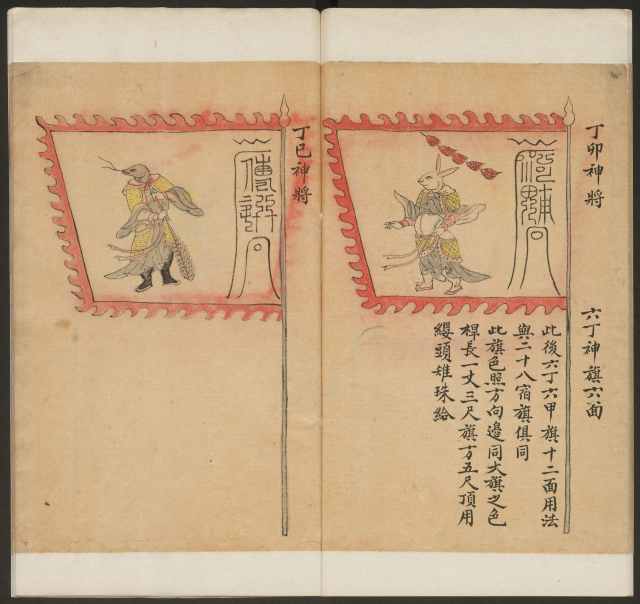 丁卯神將
六丁神旗六面
此後六丁六甲旗十二面用法
與二十八宿旗俱同
此旗色照方向邊同大旗之色
桿長一丈三尺旗方五尺頂用
纓頭雉珠給
丁巳神將